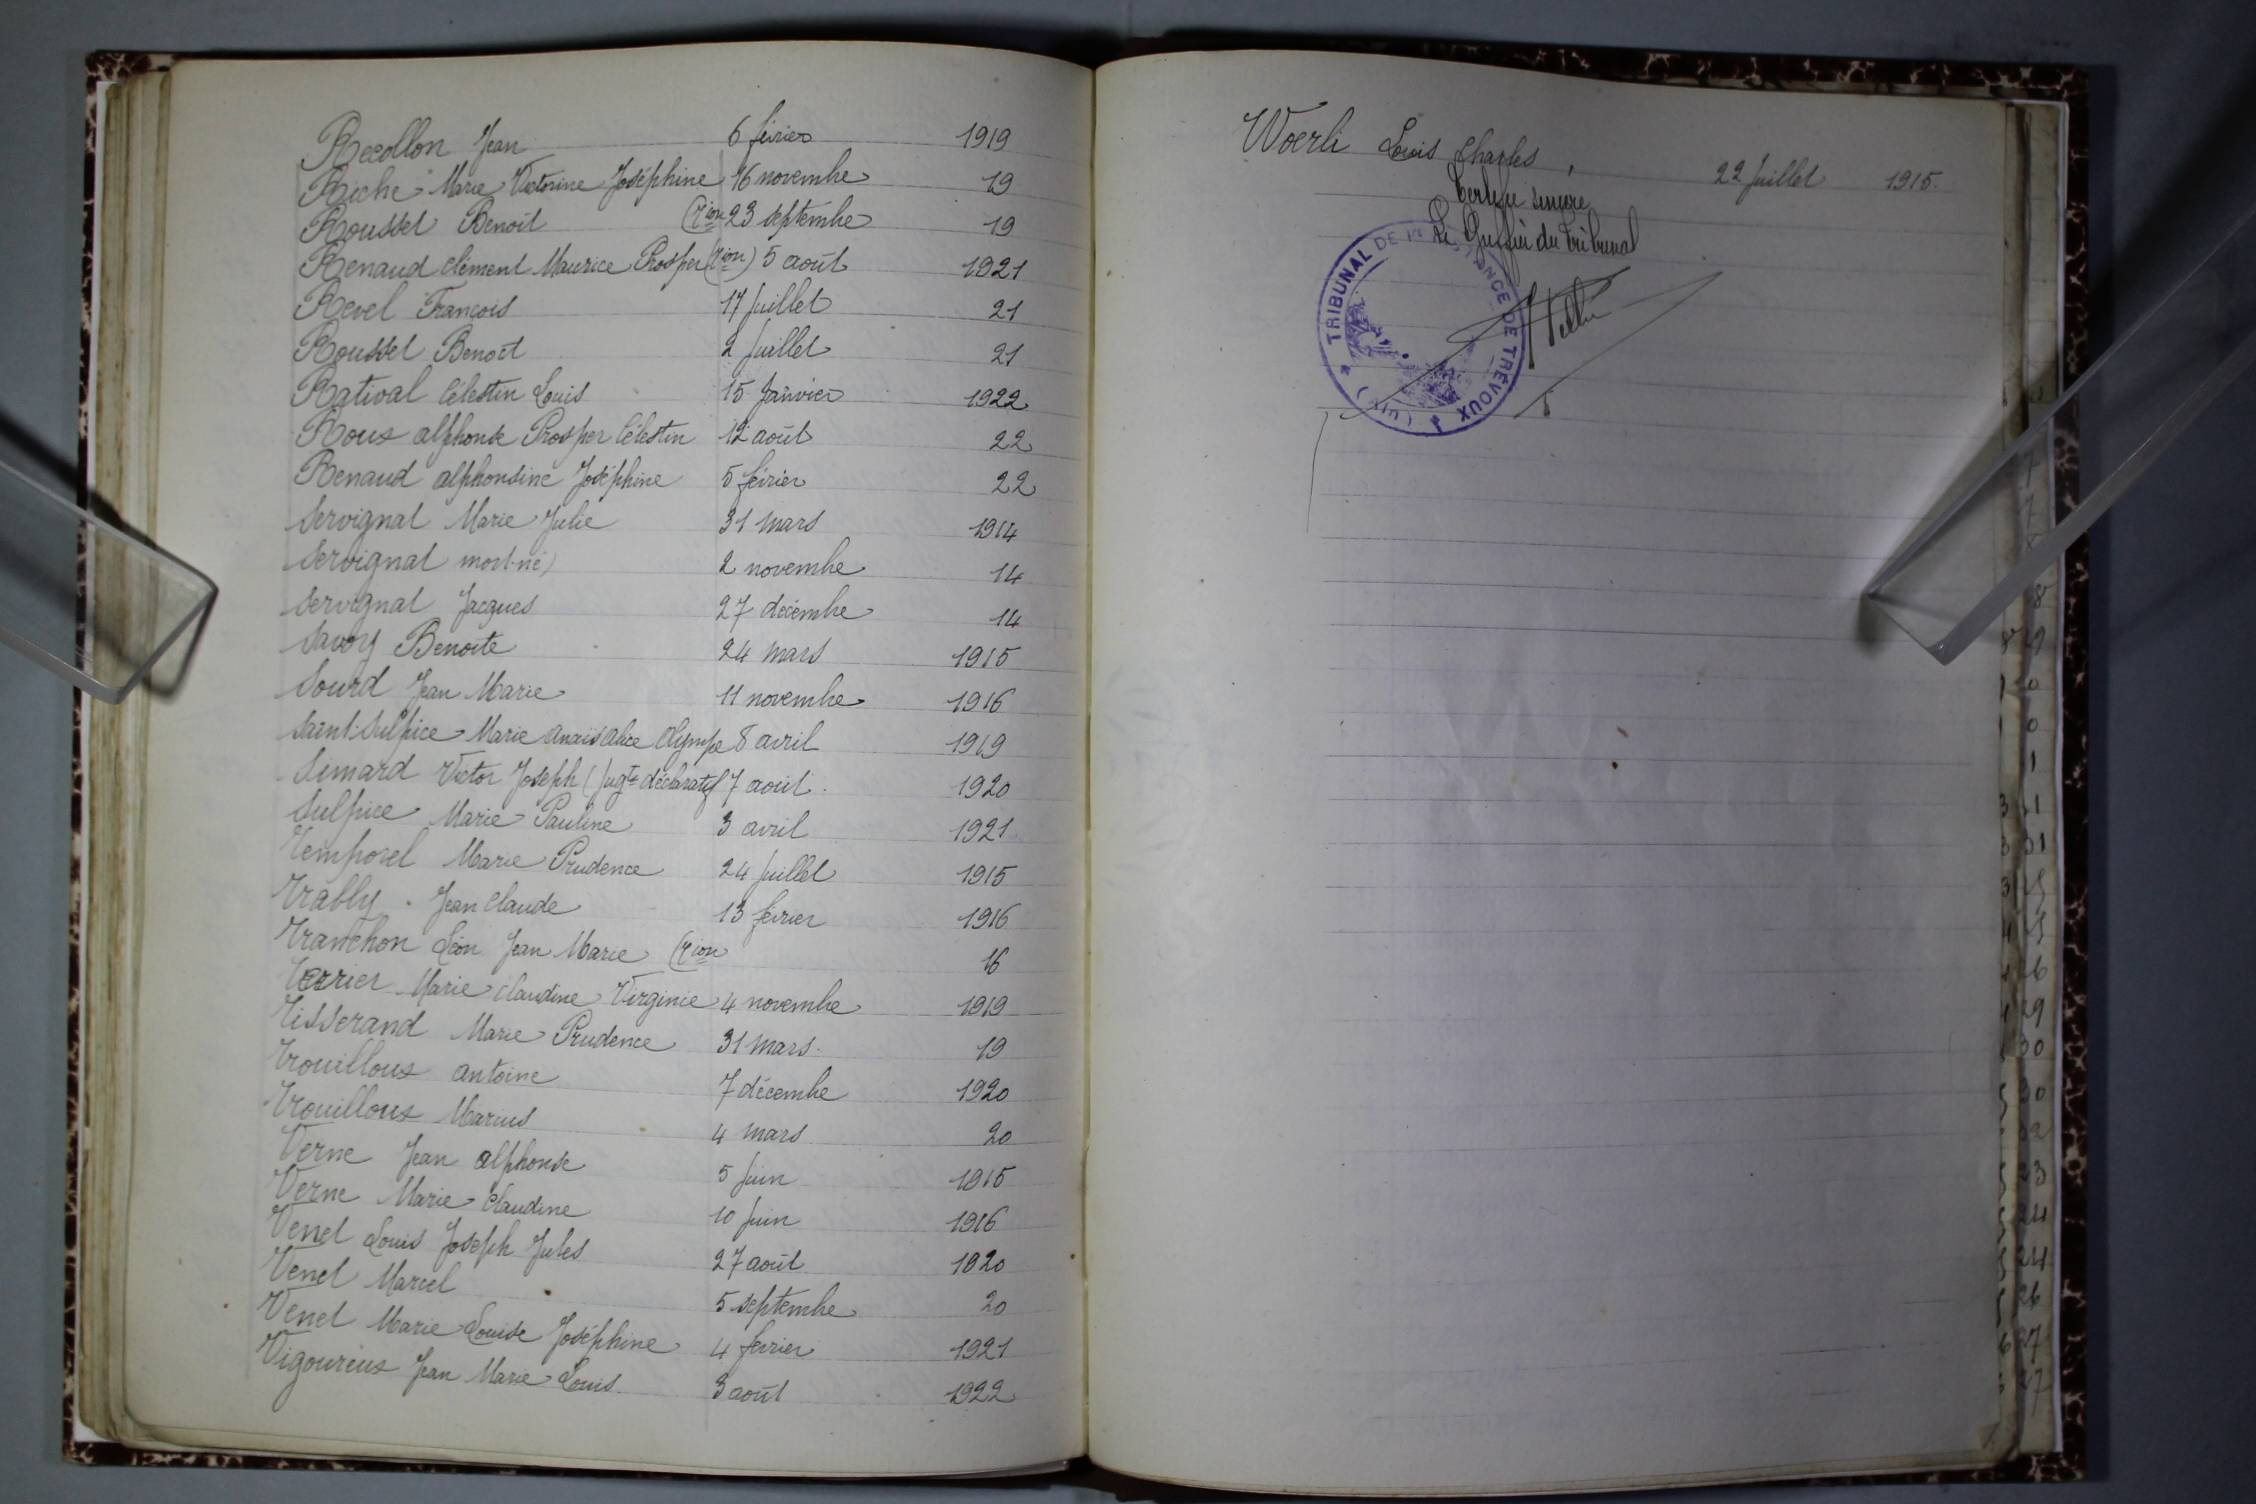 Recollon Jean 6 février 1919
Riche Marie Victorine Joséphine 16 novembre 19
Rousset Benoît (Tion 23 septembre 19
Renaud Clément Maurice Prosper (Tion) 5 août 1921
Revel François 17 Juillet 21
Rousset Benoît 2 Juillet 21
Rativat Célestin Louis 15 Janvier 1922
Roux alphonse Prosper Célestin 12 août 22
Renaud alphonsine Joséphine 5 février 22
Servignat Marie Julie 31 Mars 1914
Servignat mort-né) 2 novembre 14
Servignat Jacques 27 décembre 14
Savoy Benoîte 24 Mars 1915
Sourd Jean Marie 11 novembre 1916
Saint-Sulpice Marie anaïs alice Olympe 8 avril 1919
Simard Victor Joseph (Jugt déclaratif 7 août 1920
Sulpice Marie Pauline 3 avril 1921
Temporel Marie Prudence 24 Juillet 1915
Trably Jean Claude 13 février 1916
Tranchon Léon Jean Marie (Tion 16
Terrier Marie Claudine Virginie 4 novembre 1919
Tisserand Marie Prudence 31 Mars 19
Trouilloux antoine 7 décembre 1920
Trouilloux Marius 4 Mars 20
Verne Jean alphonse 5 Juin 1915
Verne Marie Claudine 10 Juin 1916
Venet Louis Joseph Jules 27 août 1920
Venet Marcel 5 septembre 20
Venet Marie Louise Joséphine 4 février 1921
Vigoureux Jean Marie Louis 3 août 1922
Woerli Louis Charles, 22 Juillet 1915.
Certifié sincère
Le Greffier du Tribunal
TRIBUNAL DE 1re INSTANCE DE TRÉVOUX (AIN)